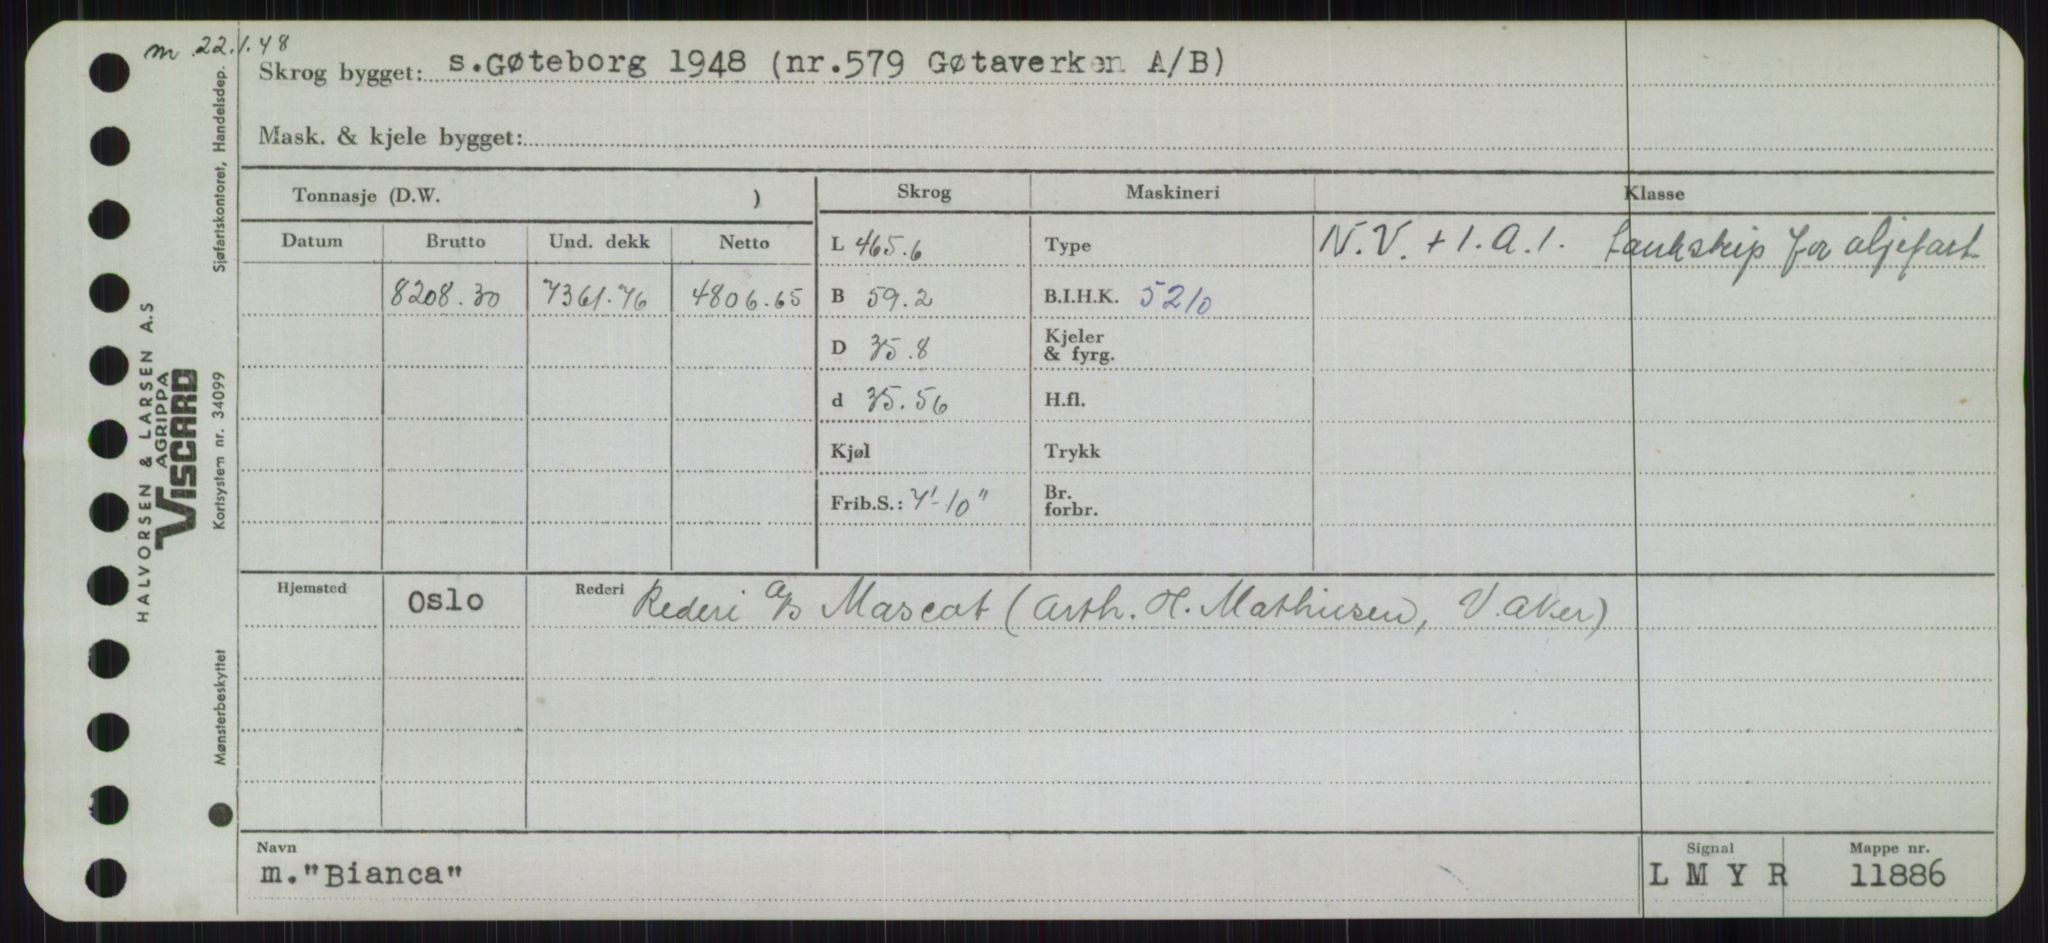 m 22.1.48
Skrog bygget: s.Gøteborg 1948 (nr.579 Gøtaverken A/B)
Mask. & kjele bygget:
Tonnasje (D.W. )
Skrog Maskineri Klasse
Datum Brutto Und. dekk Netto
L 465.6 Type N.V. + 1.A.1. Tankskip for oljefart
8208.30 7361.76 4806.65 B 59.2 B.I.H.K. 5210
D 35.8 Kjeler
& fyrg.
d 35.56 H.fl.
Kjøl Trykk
Frib.S.: 7'-10" Br.
forbr.
Hjemsted Oslo Rederi Rederi A/S Mascot (Arth. H. Mathiesen, V. Aker)
Navn
m."Bianca"
Signal
L M Y R
Mappe nr.
11886
HALVORSEN & LARSEN A.S
AGRIPPA
VISCARD
Sjøfartskontoret, Handelsdep.
Kortsystem nr. 34099
Mønsterbeskyttet